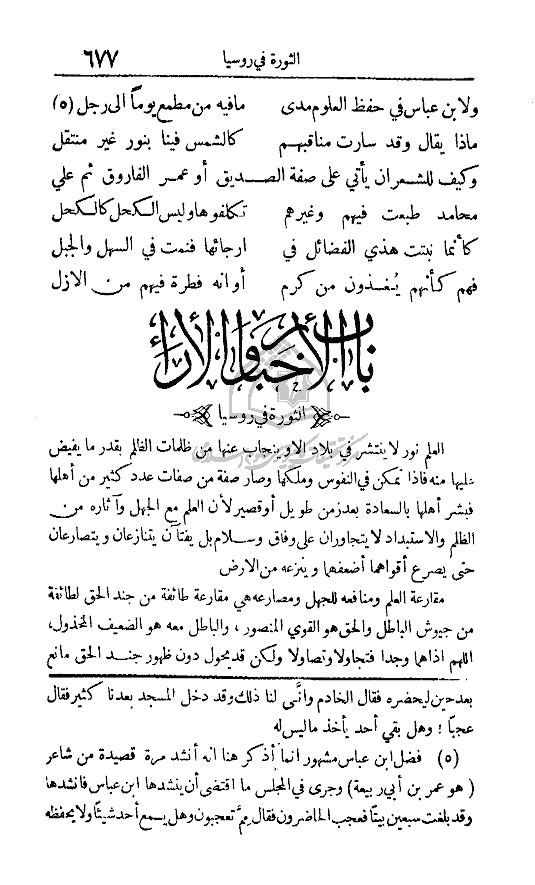 الثورة في روسيا ٦٧٧
ولابن عباس في حفظ العلوم مدى مافيه من مطمع يوماً الى رجل (٥)
ماذا يقال وقد سارت مناقبهم كالشمس فينا بنور غير منتقل
وكيف للشعر ان يأتي على صفة الصديق أو عمر الفاروق ثم علي
محامد طبعت فيهم وغيرهم تكلفوها وليس الكحل كالكحل
كأنما نبتت هذي الفضائل في ارجائها فنمت في السهل والجبل
فهم كأنهم يُغذون من كرم أو انه فطرة فيهم من الازل
باب الأخبار والأراء
الثورة في روسيا
العلم نور لا ينتشر في بلاد الا وينجاب عنها من ظلمات الظلم بقدر ما يفيض
عليها منه فاذا تمكن في النفوس وملكها وصار صفة من صفات عدد كثير من أهلها
فبشر أهلها بالسعادة بعد زمن طويل أو قصير لأن العلم مع الجهل وآثاره من
الظلم والاستبداد لا يتجاوران على وفاق وسلام بل يفتآن يتنازعان ويتصارعان
حتى يصرع أقواهما أضعفهما وينزعه من الارض
مقارعة العلم ومنافعه للجهل ومصارعه هي مقارعة طائفة من جند الحق لطائفة
من جيوش الباطل والحق هو القوي المنصور ، والباطل معه هو الضعيف المخذول،
اللهم اذا هما وجدا فتجاولا وتصاولا ولكن قد يحول دون ظهور جند الحق مانع
بعد حين ليحضره فقال الخادم وانَّى لنا ذلك وقد دخل المسجد بعدنا كثير فقال
عجباً ! وهل بقي أحد يأخذ ما ليس له
(٥) فضل ابن عباس مشهور انما أذكر هنا انه أنشد مرة قصيدة من شاعر
( هو عمر بن أبي ربيعة ) وجرى في المجلس ما اقتضى أن ينشدها ابن عباس فانشدها
وقد بلغت سبعين بيتاً فعجب الحاضرون فقال مِمَّ تعجبون وهل يسمع أحد شيئاً ولا يحفظه